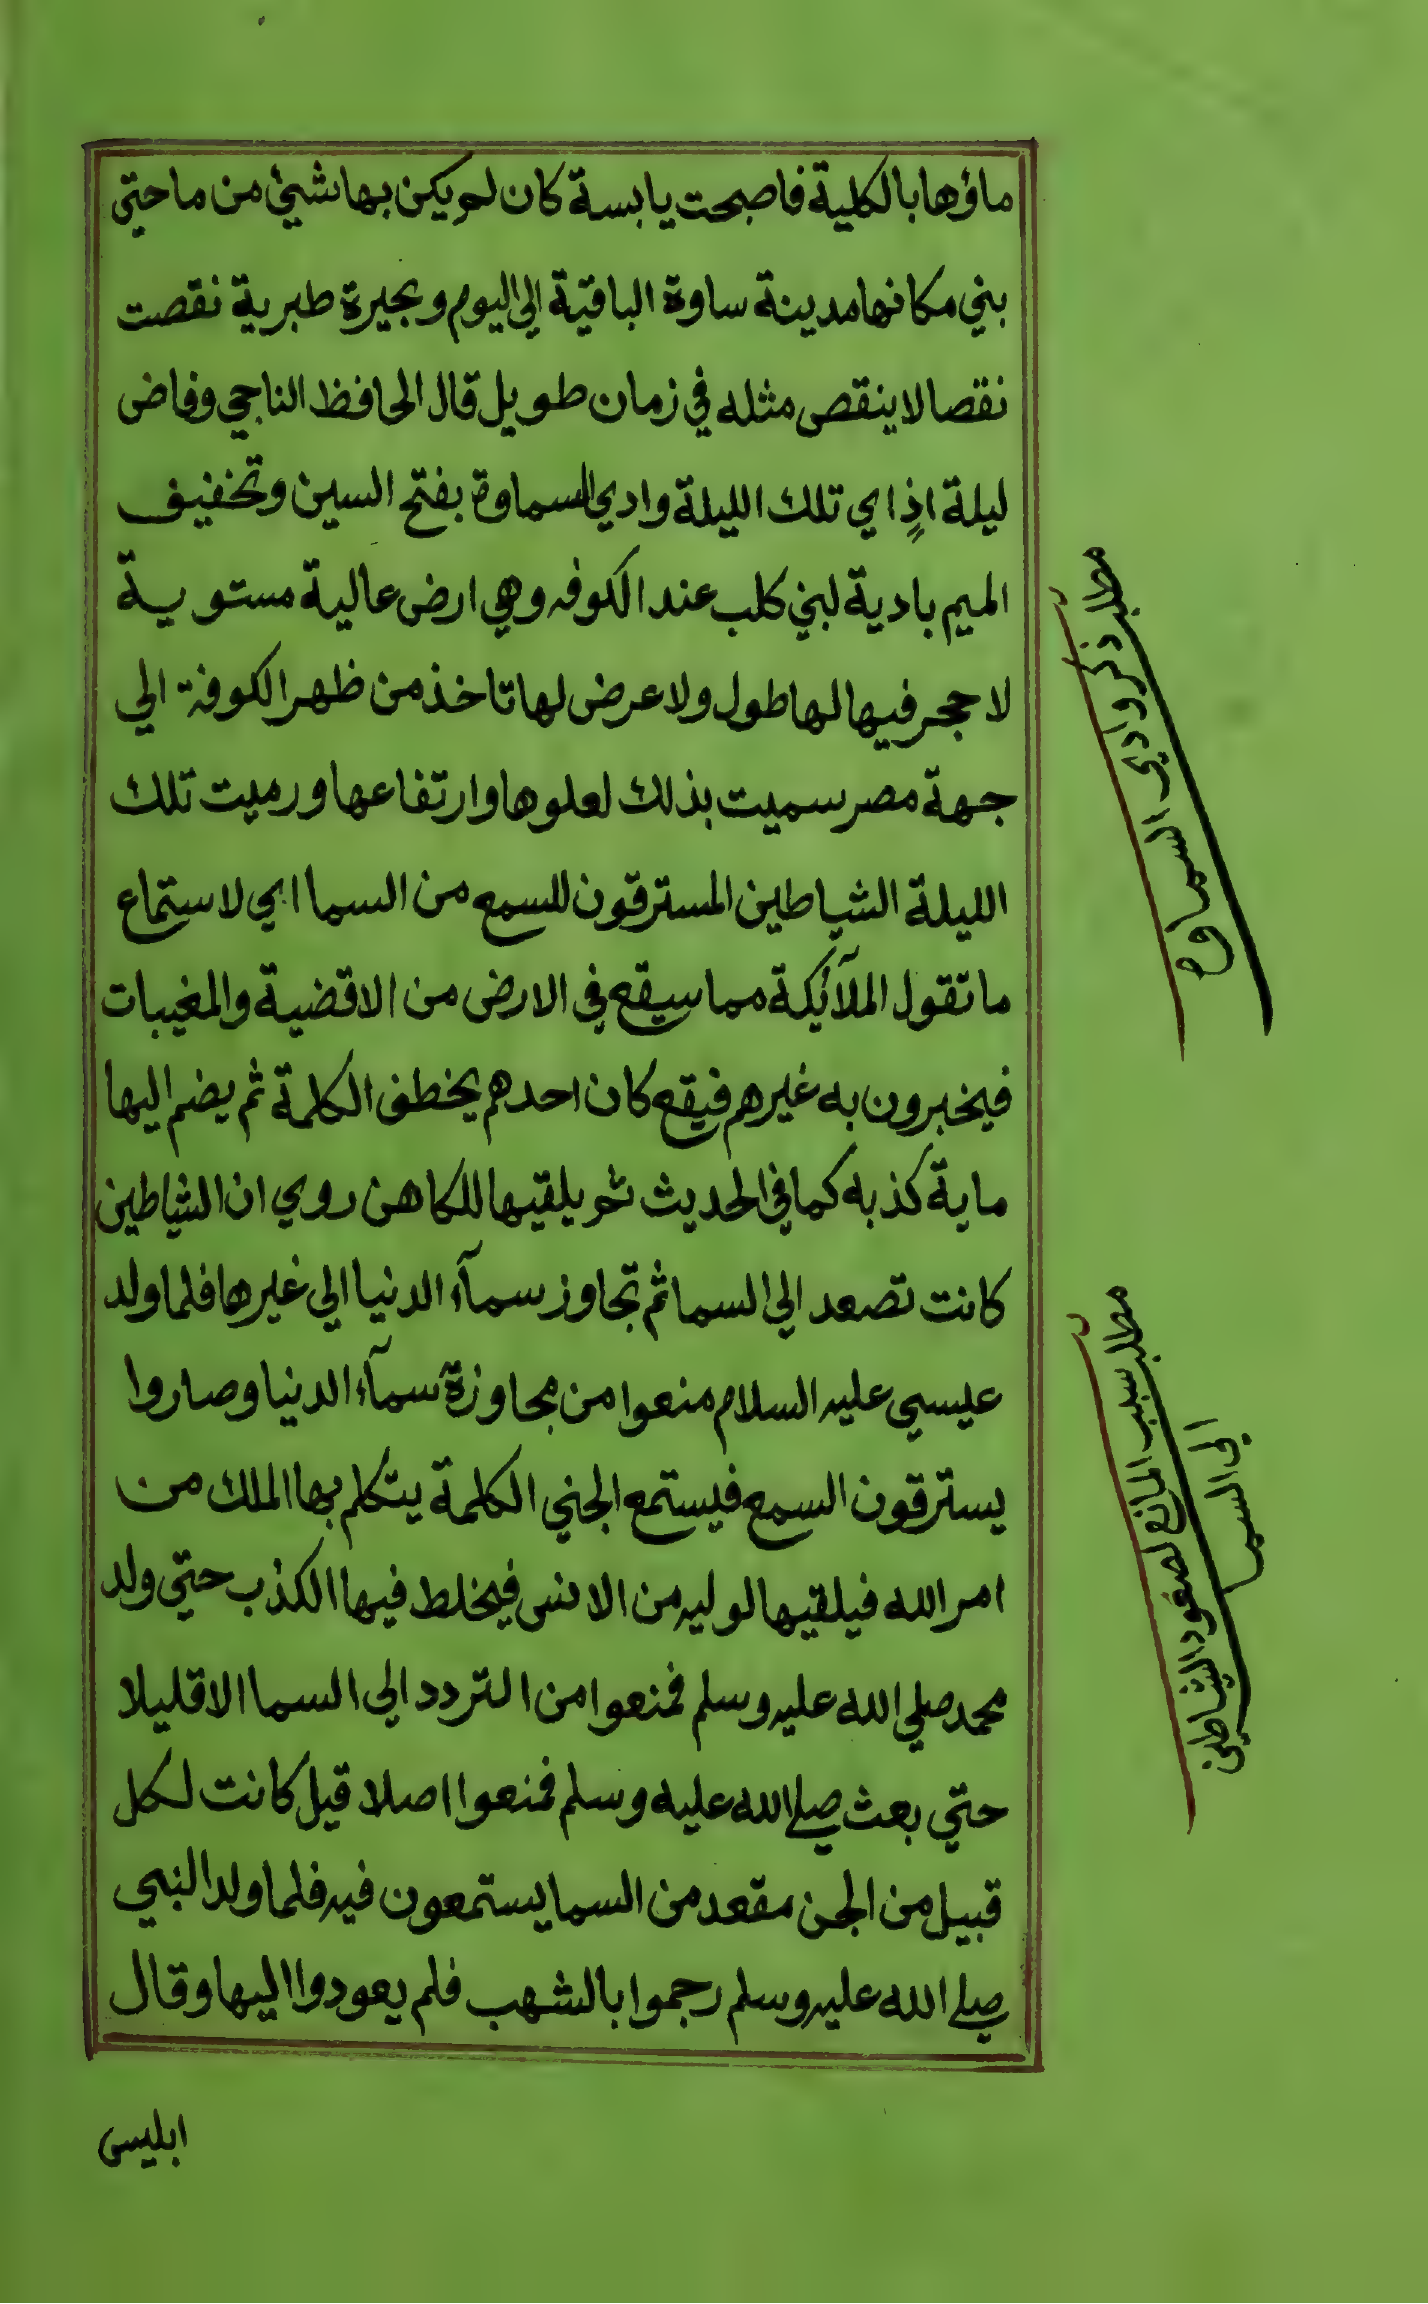 ماؤها بالكلية فاصبحت يابسة كان لم يكن بها شيئ من ما حتي
بني مكانها مدينة ساوة الباقية الي اليوم وبحيرة طبرية نقصت
نقصا لا ينقص مثله في زمان طويل قال الحافظ الناجي وفاض
ليلة اذٍ اي تلك الليلة وادي السماوة بفتح السين وتخفيف
الميم بادية لبني كلب عند الكوفه وهي ارض عالية مستوية
لا حجر فيها لها طول ولا عرض لها تاخذ من ظهر الكوفة الي
جهة مصر سميت بذلك لعلوها وارتفاعها ورميت تلك
الليلة الشياطين المسترقون للسمع من السما اي لاستماع
ما تقول الملآئكة مما سيقع في الارض من الاقضية والمغيبات
فيخبرون به غيرهم فيقع كان احدهم يخطف الكلمة ثم يضم اليها
ماية كذبه كما في الحديث ثم يلقيها للكاهن روي ان الشياطين
كانت تصعد الي السما ثم تجاوز سمآء الدنيا الي غيرها فلما ولد
عيسي عليه السلام منعوا من مجاوزة سمآء الدنيا وصاروا
يسترقون السمع فيستمع الجني الكلمة يتكلم بها الملك من
امر الله فيلقيها لوليه من الانس فيخلط فيها الكذب حتي ولد
محمد صلي الله عليه وسلم فمنعوا من التردد الي السما الا قليلا
حتي بعث صلي الله عليه وسلم فمنعوا اصلا قيل كانت لكل
قبيل من الجن مقعد من السما يستمعون فيه فلما ولد النبي
صلي الله عليه وسلم رجموا بالشهب فلم يعودوا اليها وقال
ابليس
مطلب ذكر وادي السماوة
مطلب سبب المانع لصعود الشياطين
الي السما